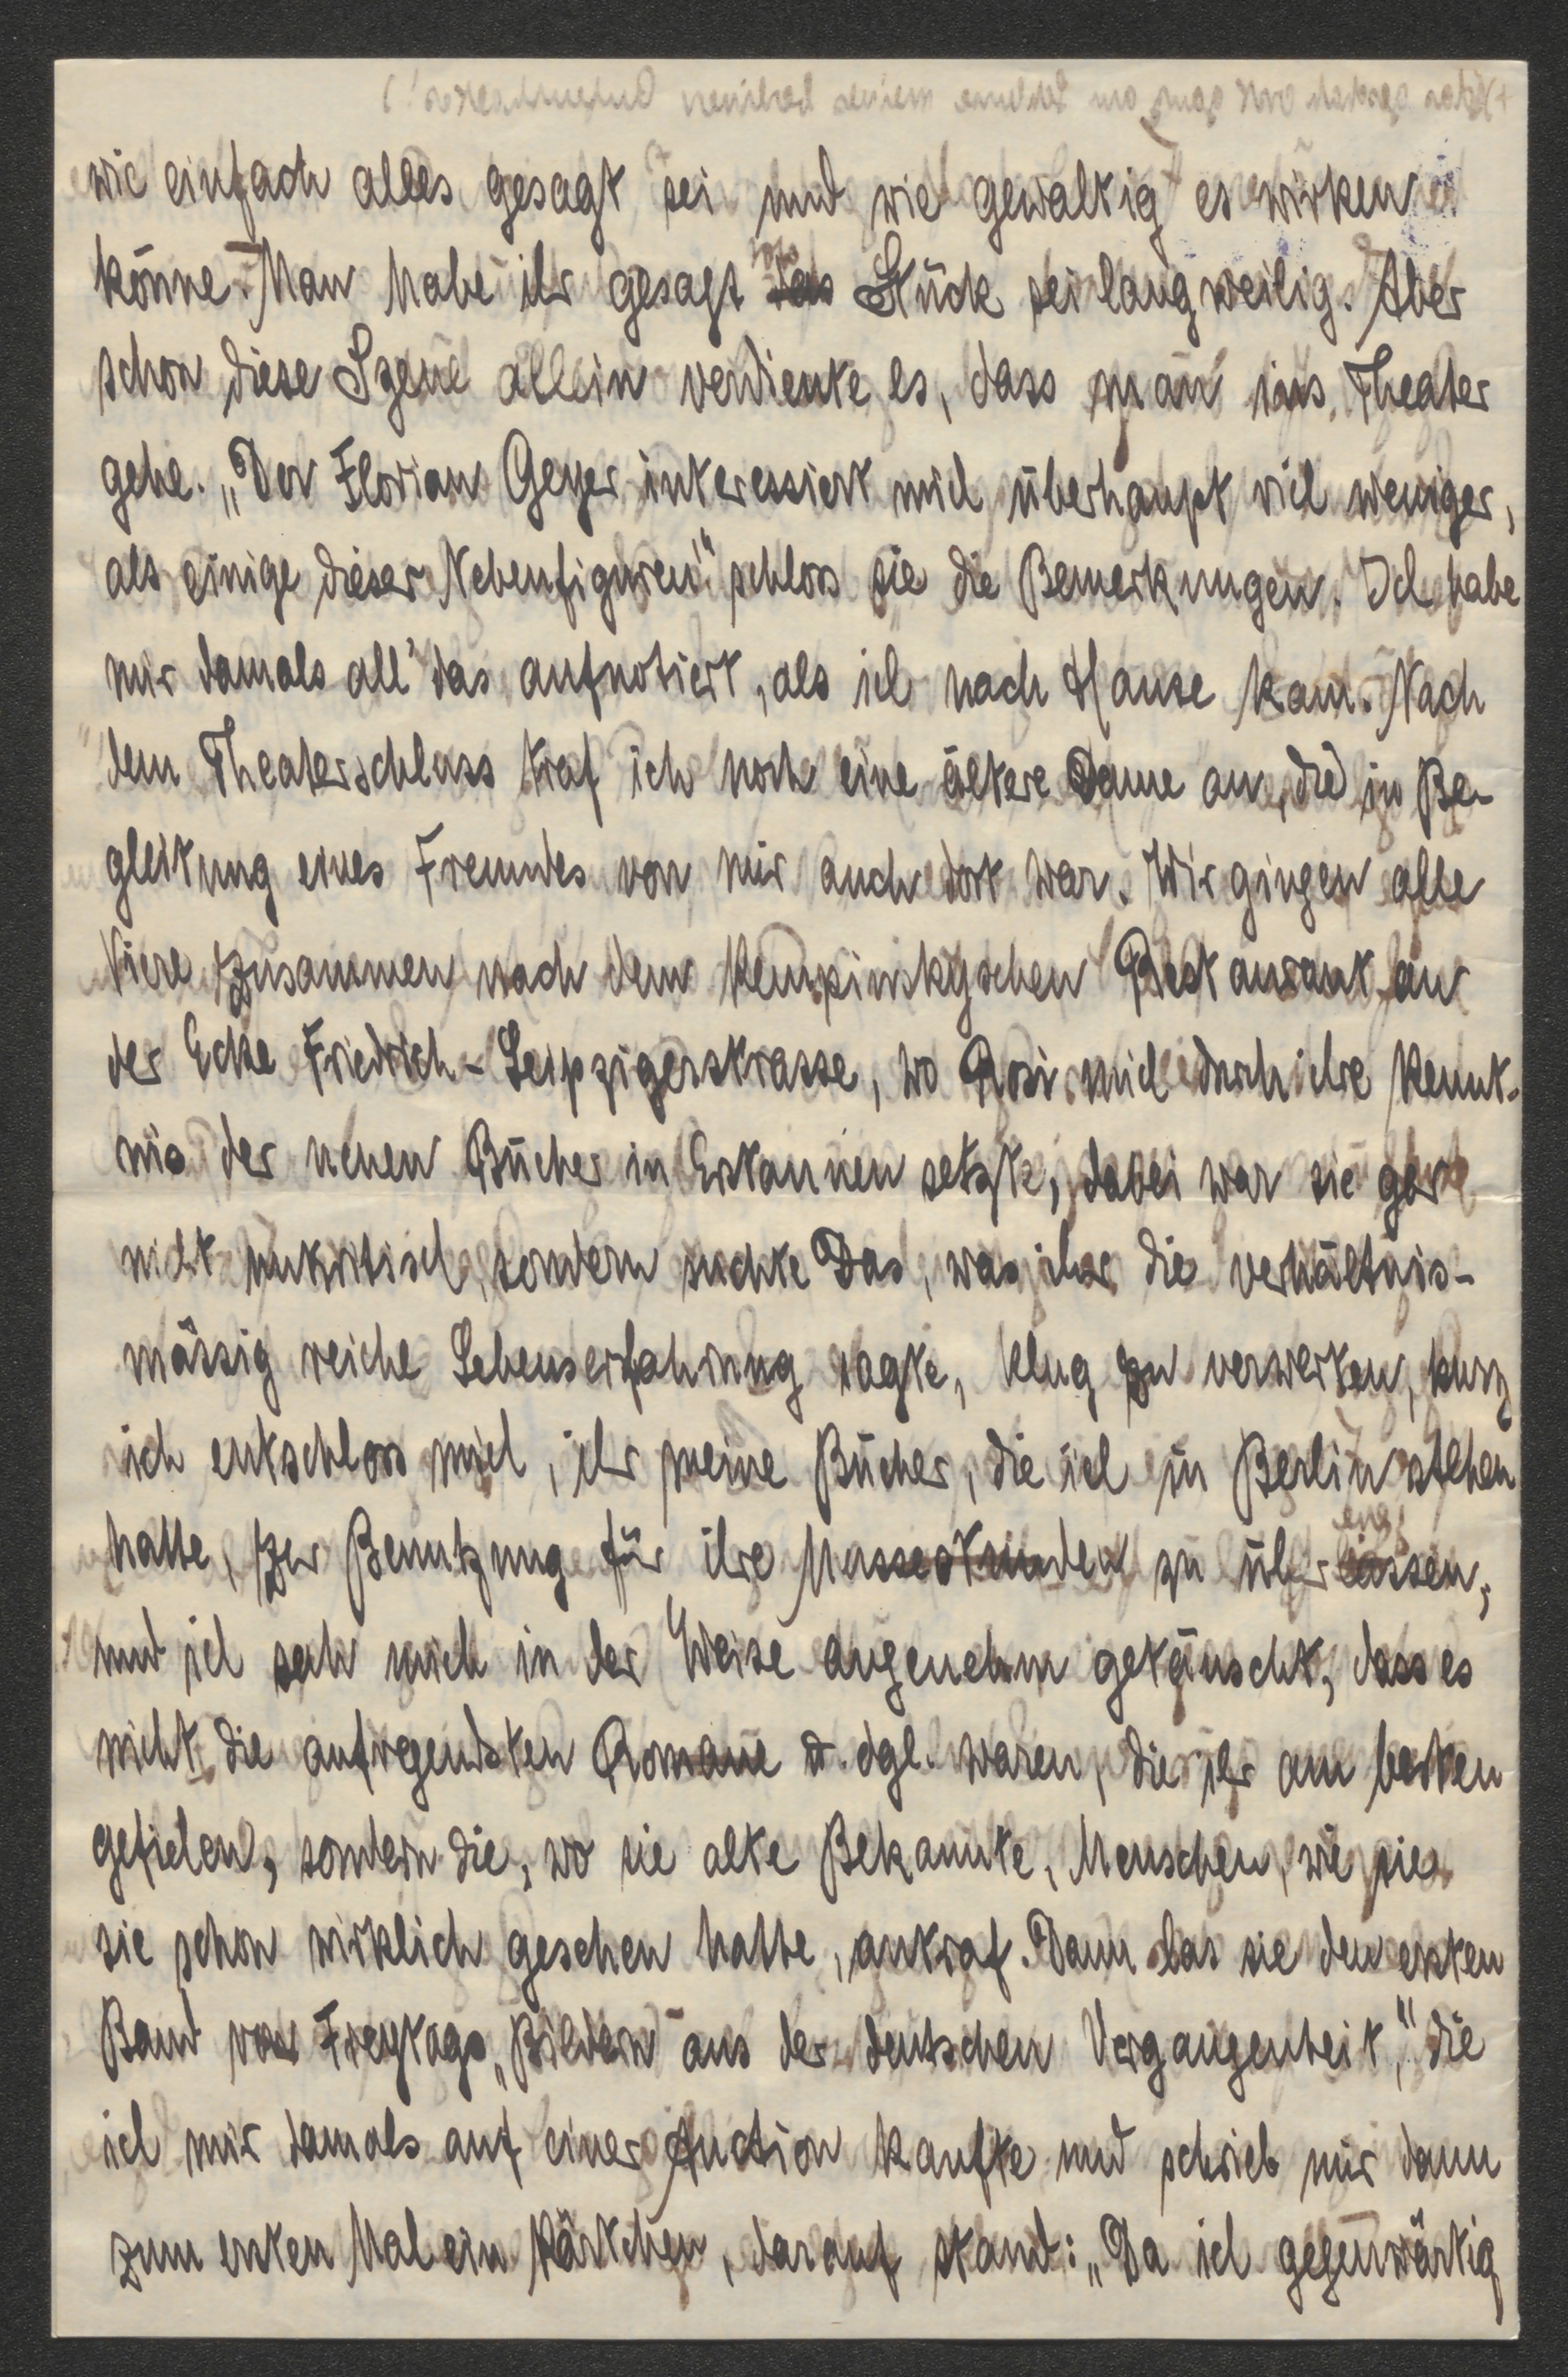 wie einfach alles gesagt sei und wie gewaltig es wirken
könne. Man habe ihr gesagt das Stück sei langweilig. Aber
schon diese Szene allein verdiente es, dass man ins Theater
gehe. „Der Florian Geyer interessiert mich überhaupt viel weniger,
als einige dieser Nebenfiguren" schloss sie die Bemerkungen. Ich habe
mir damals all' das aufnotiert, als ich nach Hause kam. Nach
dem Theaterschluss traf ich noch eine ältere Dame an, die in Be-
gleitung eines Freundes von mir auch dort war. Wir gingen alle
Viere zusammen nach dem Kempinskyschen Restaurant an
der Ecke Friedrich-Leipzigerstrasse, wo Rosi mich durch ihre Kennt-
nis der neuen Bücher in Erstaunen setzte, dabei war sie gar
nicht unkritisch, sondern suchte Das, was ihr die verhältnis-
mässig reiche Lebenserfahrung sagte, klug zu verwerten, kurz
ich entschloss mich, ihr meine Bücher, die ich in Berlin stehen
hatte, zur Benutzung für ihre Mussestunden zu überlassen,
und ich sah mich in der Weise angenehm getäuscht, dass es
nicht die aufregendsten Romane u. dgl. waren, die ihr am besten
gefielen, sondern die, wo sie alte Bekannte, Menschen, wie sie
sie schon wirklich gesehen hatte, antraf. Dann las sie den ersten
Band von Freytags „Bildern aus der deutschen Vergangenheit," die
ich mir damals auf einer Auction kaufte und schrieb mir dann
zum ersten Mal ein Kärtchen, darauf stand: „Da ich gegenwärtig